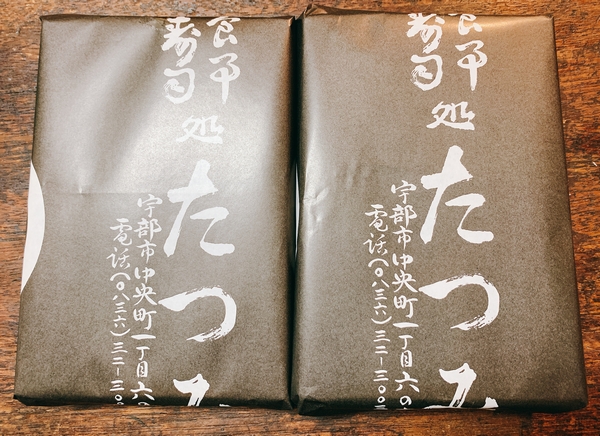 寿司
処
たつみ
宇部市中央町一丁目六の
電話(〇八三六)三二-三〇
寿司
処
たつみ
宇部市中央町一丁目六の
電話(〇八三六)三二-三〇